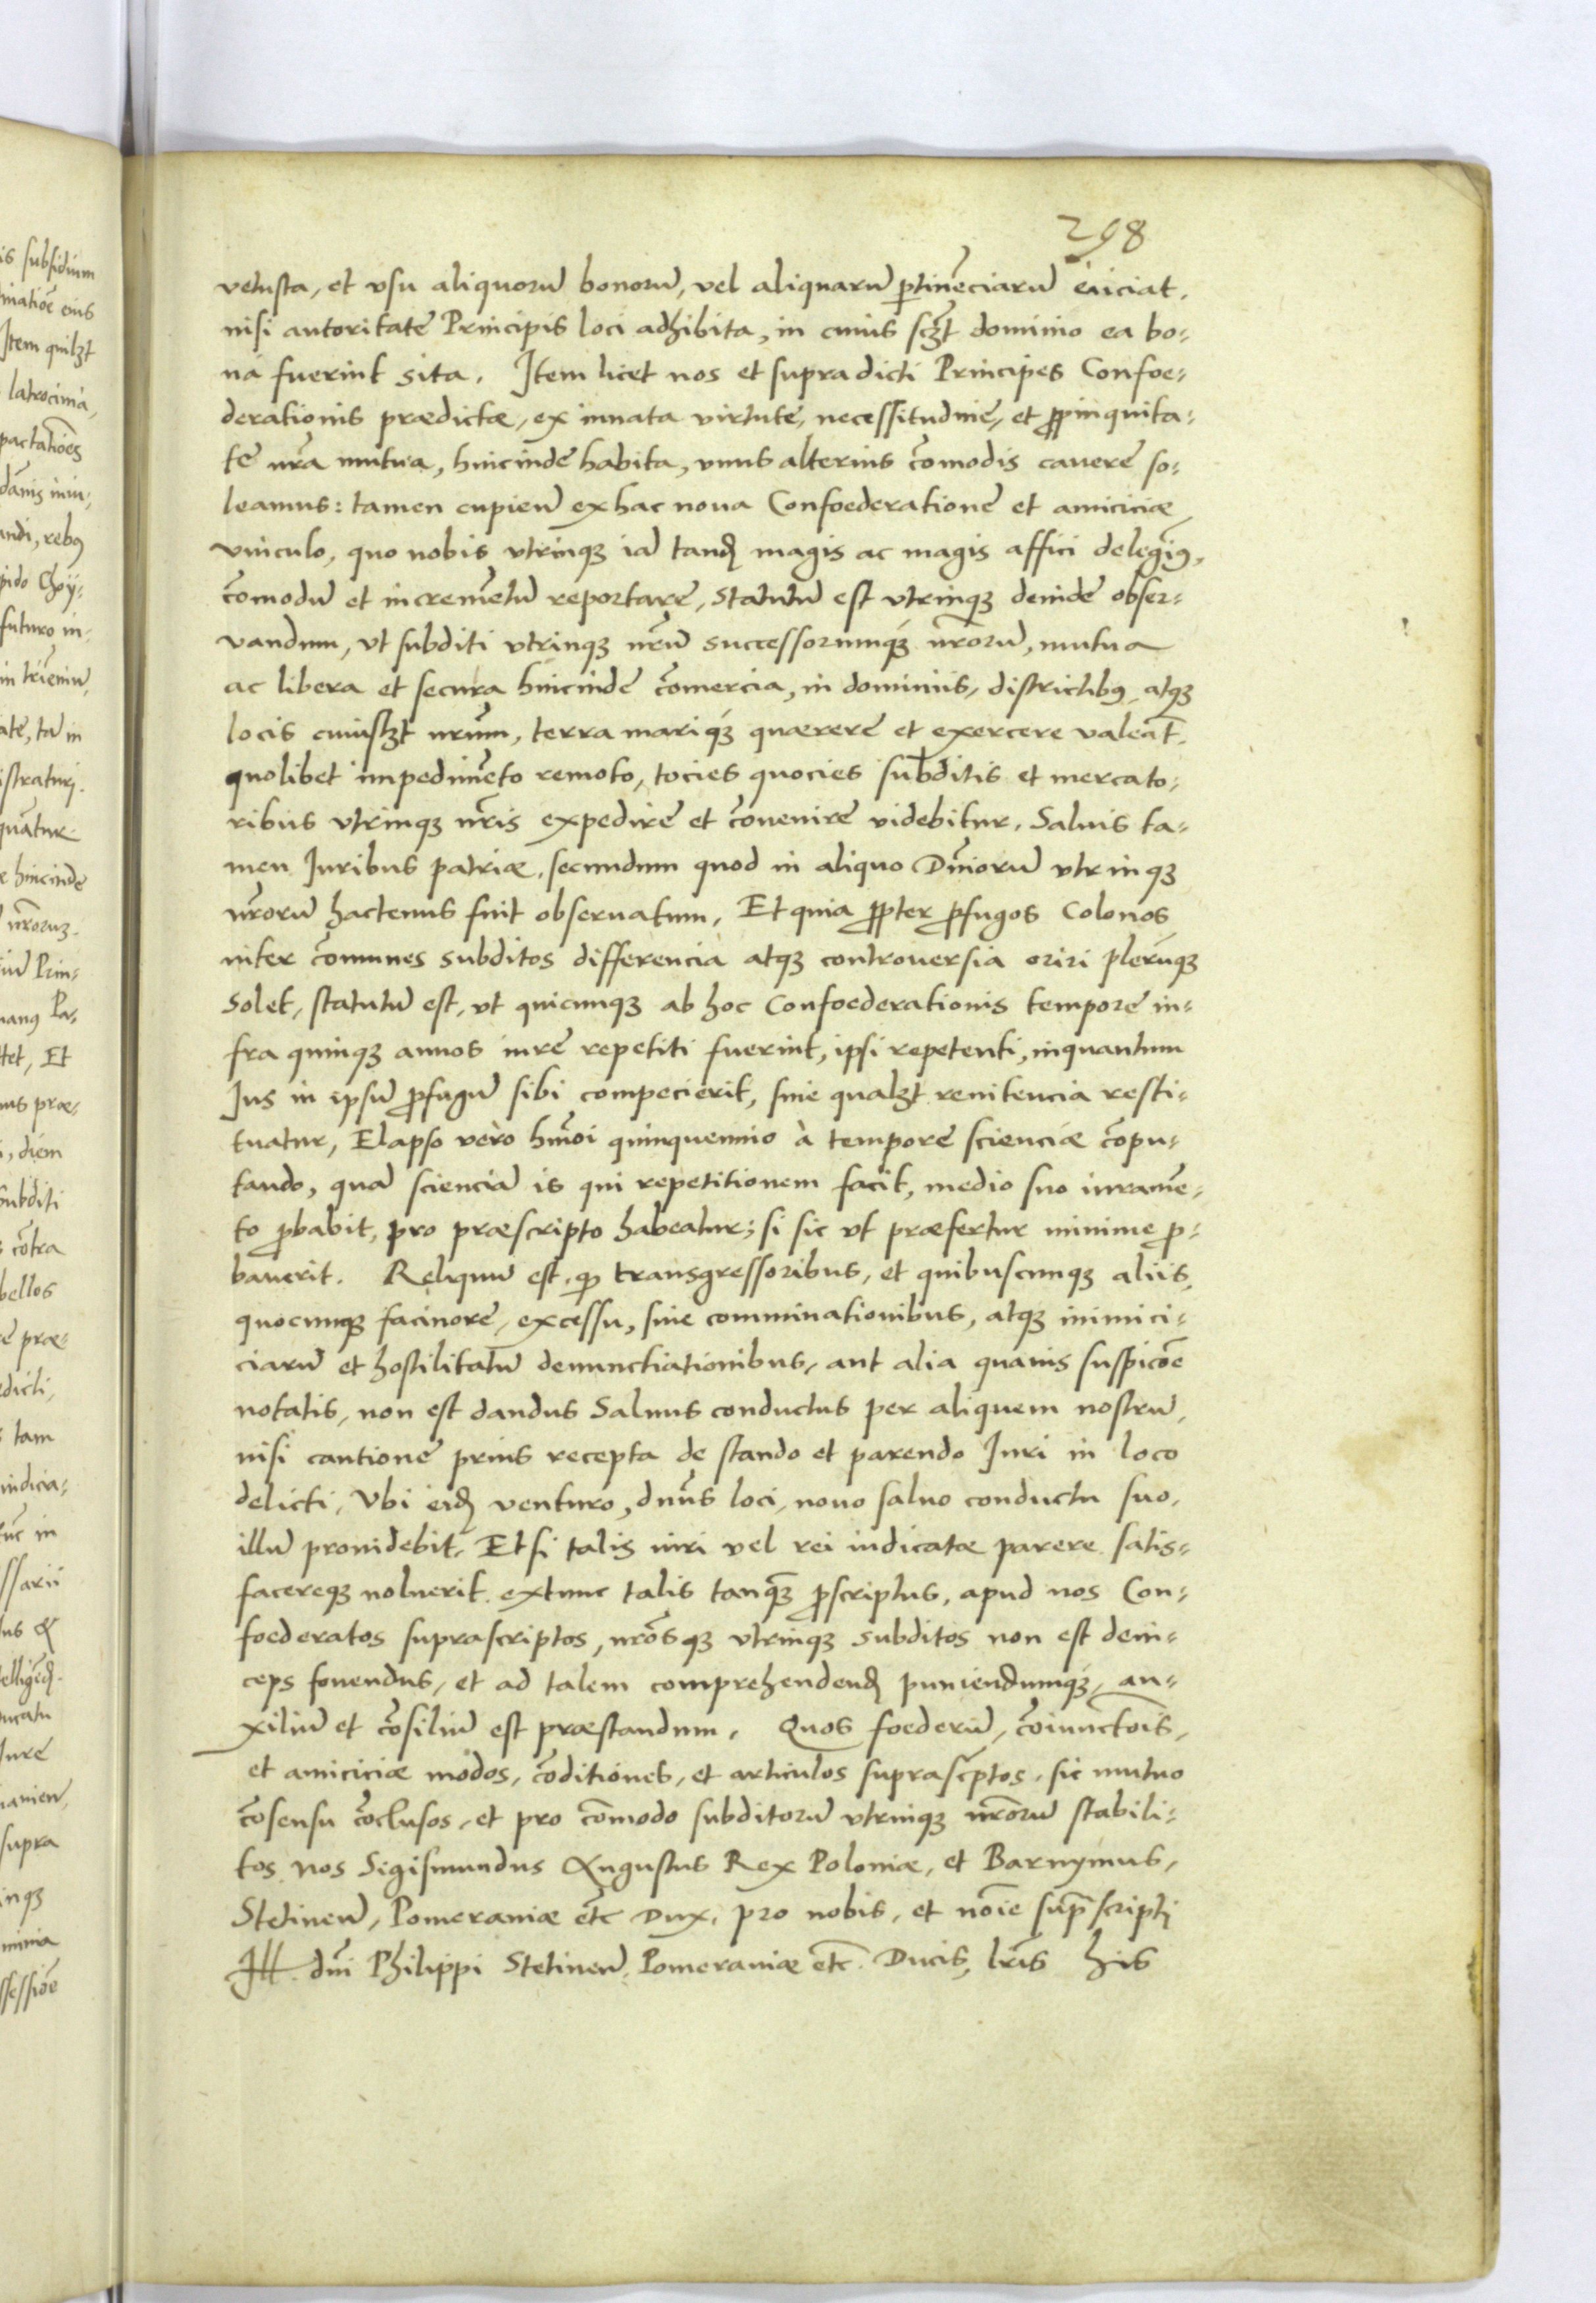 298
vetusta, et vsu aliquorũ bonorũ, vel aliquarũ ꝑtinẽciarũ eiiciat,
nisi autoritate Principis loci adhibita, in cuius sczt dominio ea bo-
na fuerint sita. Item licet nos et supradicti Principes Confoe-
derationis prædictæ, ex innata virtute, necessitudine, et ꝓpinquita-
te nrã mutua, hincinde habita, vnus alterius cõmodis cauere so-
leamus: tamen cupien̄ ex hac noua Confoederatione et amiciciæ
vinculo, quo nobis vtrinqꝫ iã tandẽ magis ac magis affici delegimꝰ,
cõmodũ et incremẽtũ reportare, statutũ est vtrinqꝫ deinde obser-
vandum, vt subditi vtrinqꝫ nr̃ũ successorumqꝫ nr̃orũ, mutua
ac libera et secura hincinde cõmercia, in dominiis, districtibꝰ atqꝫ
locis cuiuslꝫt nrũm, terra mariqꝫ quærere et exercere valeãt,
quolibet impedimẽto remoto, tocies quocies subditis et mercato-
ribus vtrinqꝫ nr̃is expedire et cõuenire videbitur. Saluis ta-
men Iuribus patriæ, secundum quod in aliquo Dñiorũ vtrinqꝫ
nr̃orũ hactenus fuit obseruatum. Et quia ꝓpter ꝓfugos Colonos
inter cõmunes subditos differencia atqꝫ controuersia oriri plerũqꝫ
solet, statutũ est, vt quicunqꝫ ab hoc Confoederationis tempore in-
fra quinqꝫ annos iure repetiti fuerint, ipsi repetenti, inquantum
Ius in ipsũ ꝓfugũ sibi competierit, sine qualꝫt renitencia resti-
tuatur, Elapso vero hmõi quinquennio à tempore scienciæ cõpu-
tando, quã scienciã is qui repetitionem facit, medio suo iuramẽ-
to ꝓbabit, pro præscripto habeatur; si sic vt præfertur minime ꝓ-
bauerit. Reliquũ est, qꝫ transgressoribus, et quibuscunqꝫ aliis,
quocunqꝫ facinore, excessu, siue comminationibus, atqꝫ inimici-
ciarũ et hostilitatũ denunctiationibus, aut alia quauis suspicõe
notatis, non est dandus Saluus conductus per aliquem nostrũ,
nisi cautione prius recepta de stando et parendo Iuri in loco
delicti, Vbi eidẽ venturo, dnũs loci, nouo saluo conductu suo,
illũ prouidebit, Et si talis iuri vel rei iudicatæ parere satis-
facereqꝫ noluerit, extunc talis tanqꝫ ꝓscriptus, apud nos Con-
foederatos suprascriptos, nr̃osqꝫ vtrinqꝫ subditos non est dein-
ceps fouendus, et ad talem comprehendendũ puniendumqꝫ, au-
xiliũ et cõsiliũ est præstandum. Quos foederũ, cõiunctõis,
et amiciciæ modos, cõditiones, et articulos suprasc̃ptos, sic mutuo
cõsensu cõclusos, et pro cõmodo subditorũ vtrinqꝫ nr̃orũ stabili-
tos, nos Sigismundus Augustus Rex Poloniæ, et Barnymus,
Stetinen̄, Pomeraniæ etc̃ Dux, pro nobis, et noĩe sup̃scripti
Ill. dñi Philippi Stetinen̄, Pomeraniæ etc̃. Ducis, lr̃is his